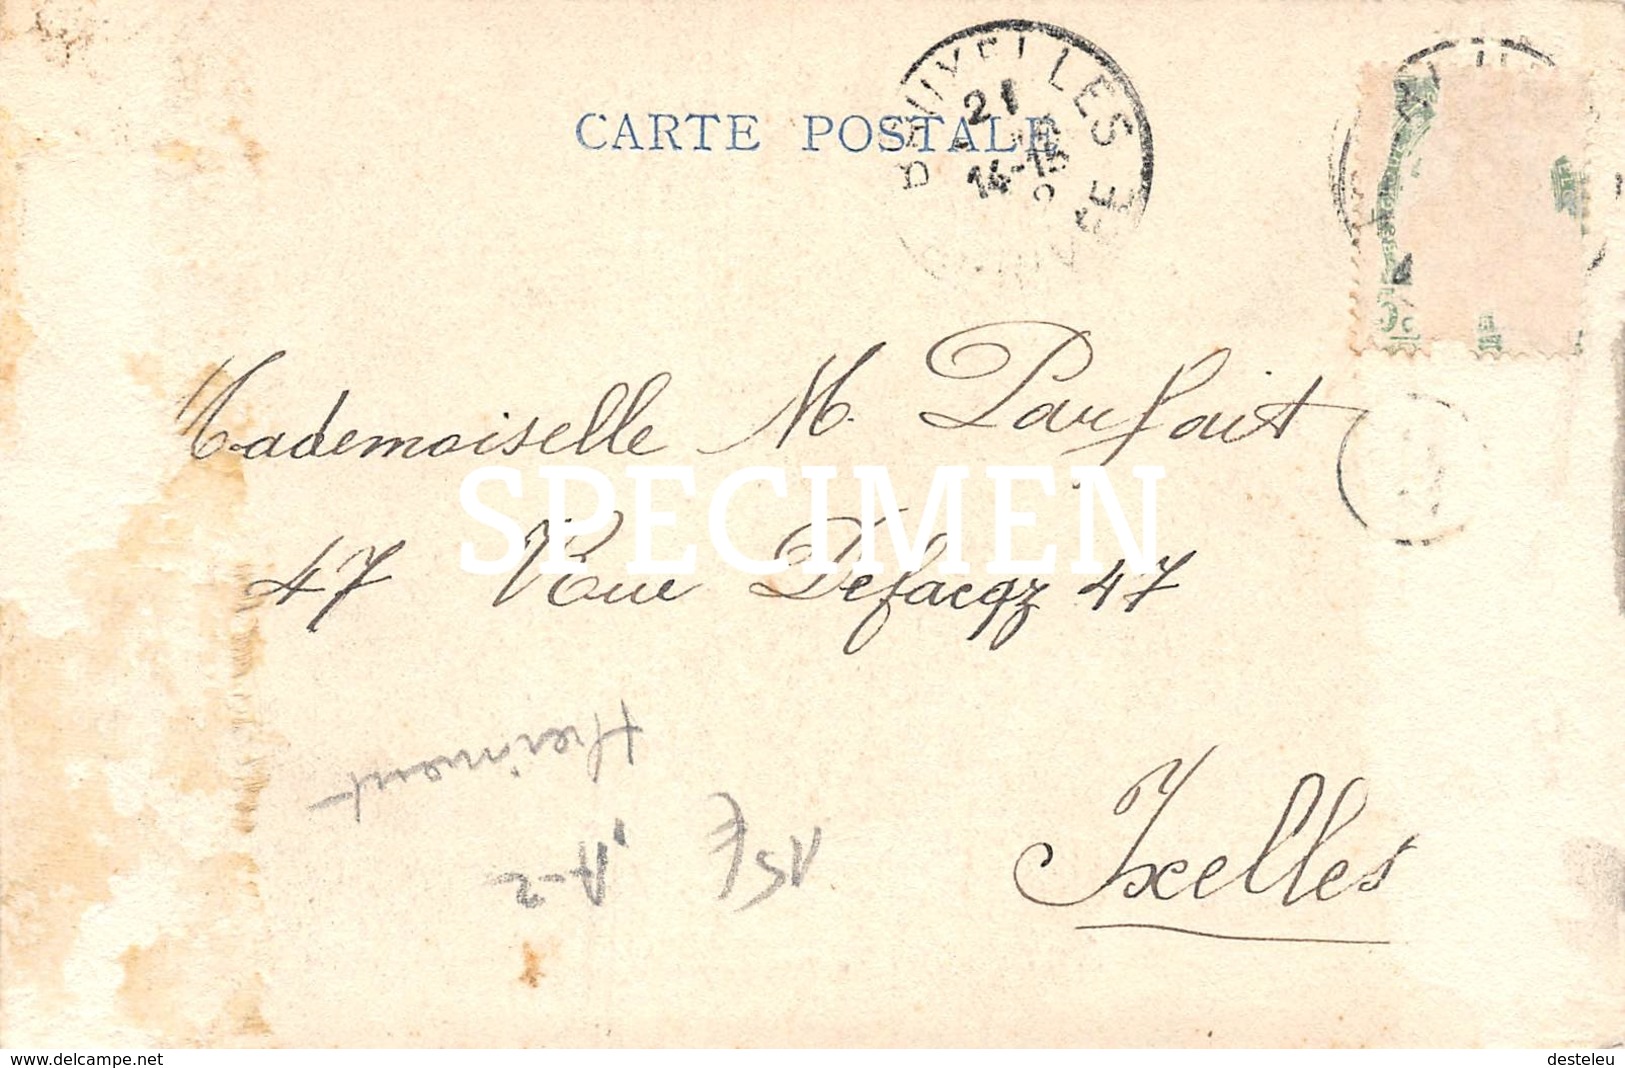 CARTE POSTALE
BRUXELLES
21
14-15
ARRIVEE
Mademoiselle M. Parfait
SPECIMEN
47 Rue Defacqz 47
Ixelles
15€
A-2
www.delcampe.net
desteleu